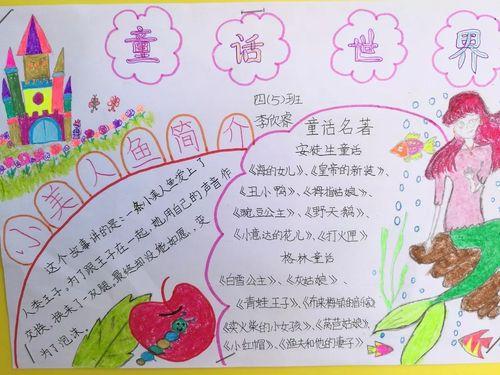 童话世界
四(5)班
李欣睿
小美人鱼简介
这个故事讲的是:一条小美人鱼爱上了
人类王子,为了跟王子在一起,她用自己的声音作
交换,换来了一双腿,最终却没能如愿、变
为了泡沫。
童话名著
安徒生童话
《海的女儿》、《皇帝的新装》、
《丑小鸭》、《拇指姑娘》、
《豌豆公主》、《野天鹅》、
《小意达的花儿》、《打火匣》
格林童话
《白雪公主》、《灰姑娘》、
《青蛙王子》、《布来梅镇的音乐家》
《卖火柴的小女孩》、《莴苣姑娘》、
《小红帽》、《渔夫和他的妻子》